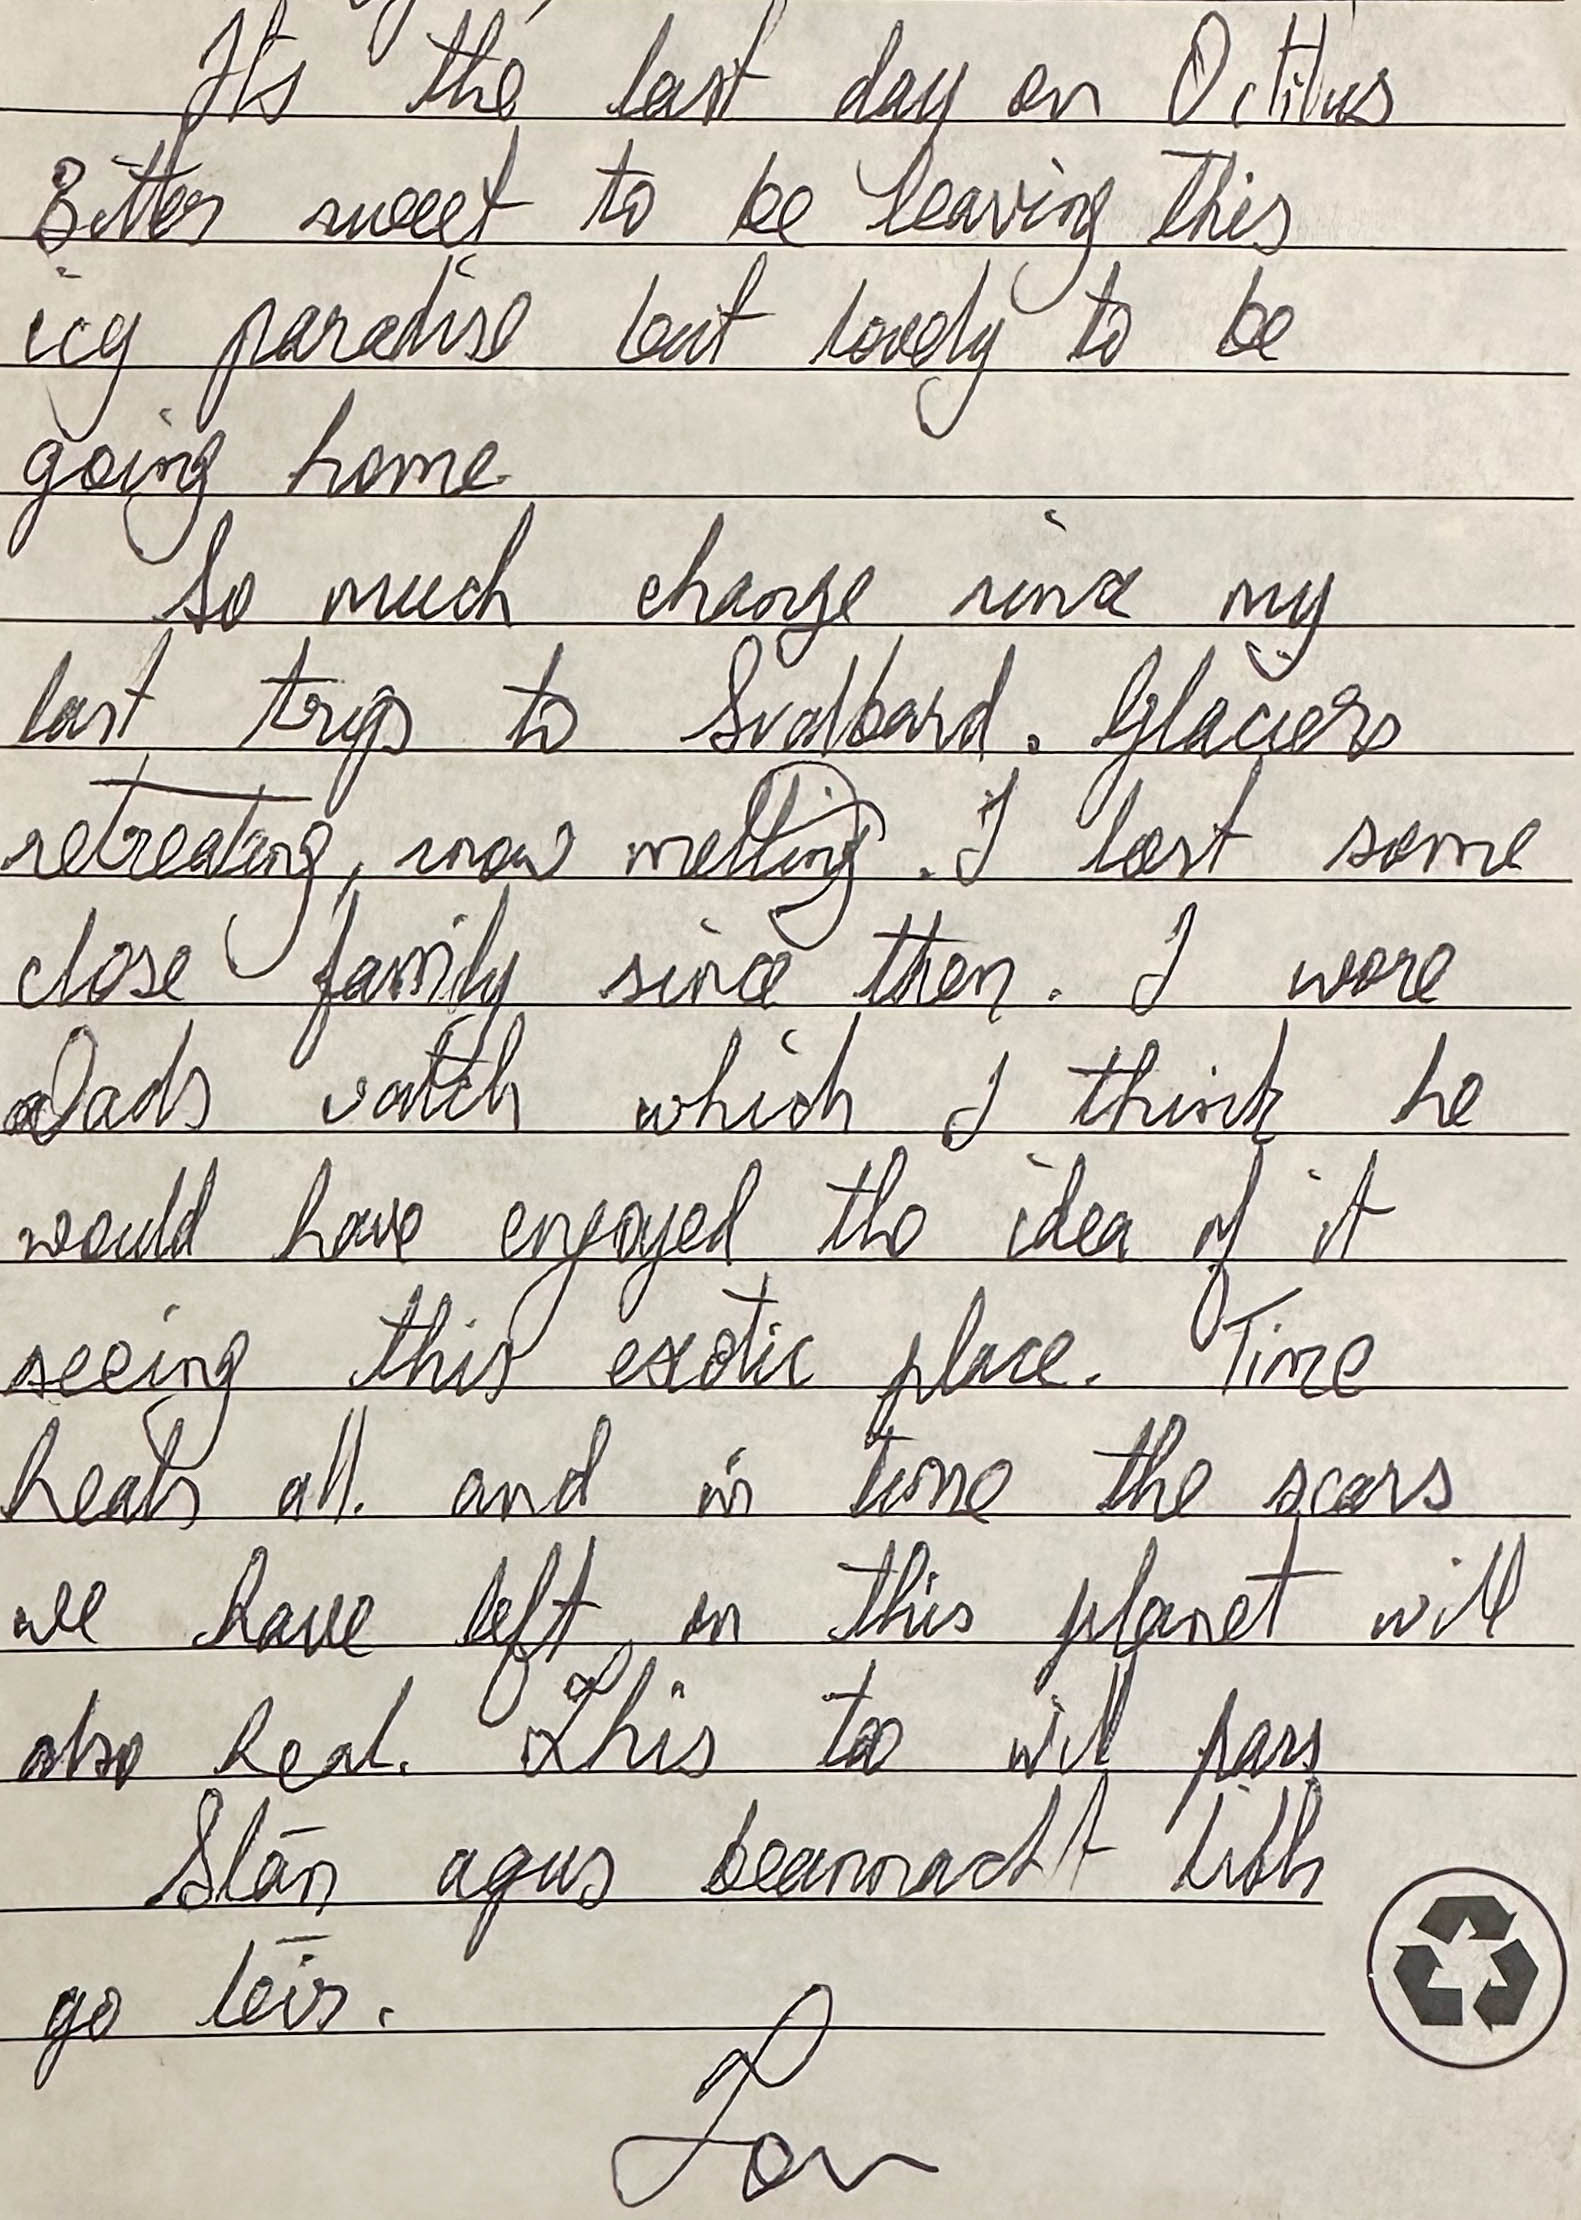 Its the last day on Octilus
Bitter sweet to be leaving this
icy paradise but lovely to be
going home.
So much change since my
last trips to Svalbard. Glaciers
retreating, snow melting. I lost some
close family since then. I wore
Dads watch which I think he
would have enjoyed the idea of it
seeing this exotic place. Time
heals all. and in time the scars
we have left on this planet will
also heal. This too will pass
Slán agus beannacht libh
go léir.